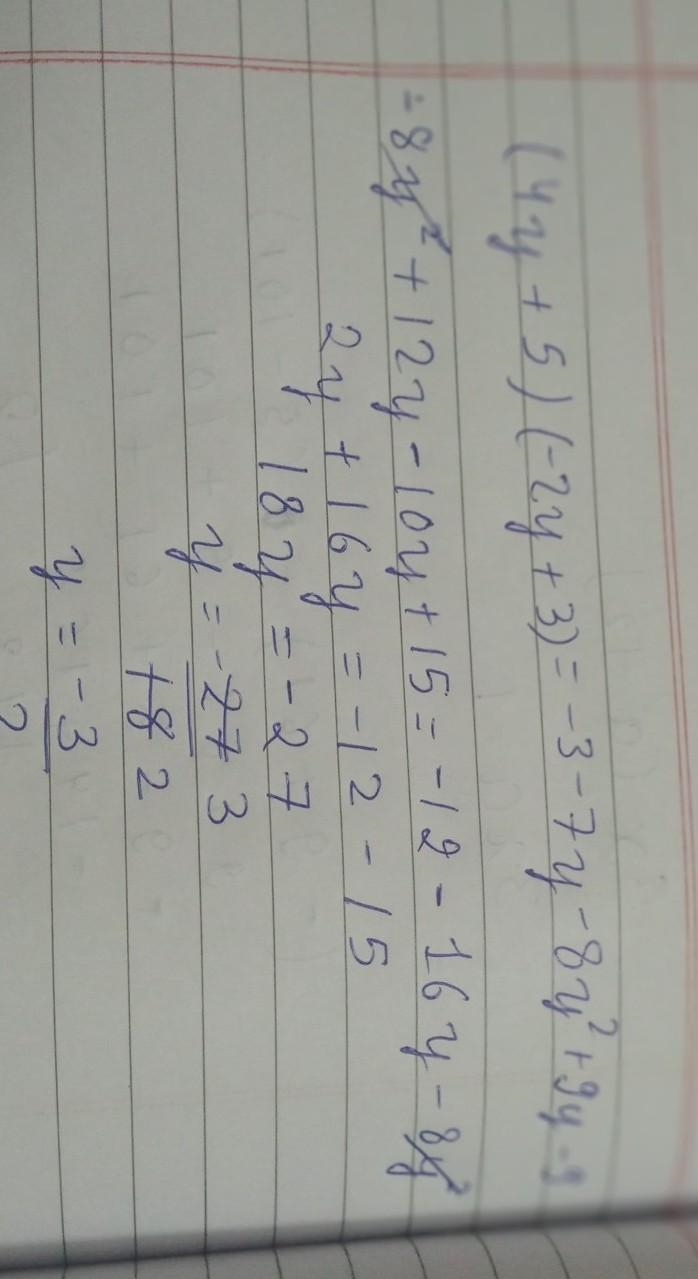 (4y + 5) (-2y + 3) = -3 - 7y - 8y² + 9y - 9
-8y² + 12y - 10y + 15 = -12 - 16y - 8y²
2y + 16y = -12 - 15
18y = -27
y = -27 3
18 2
y = -3
2